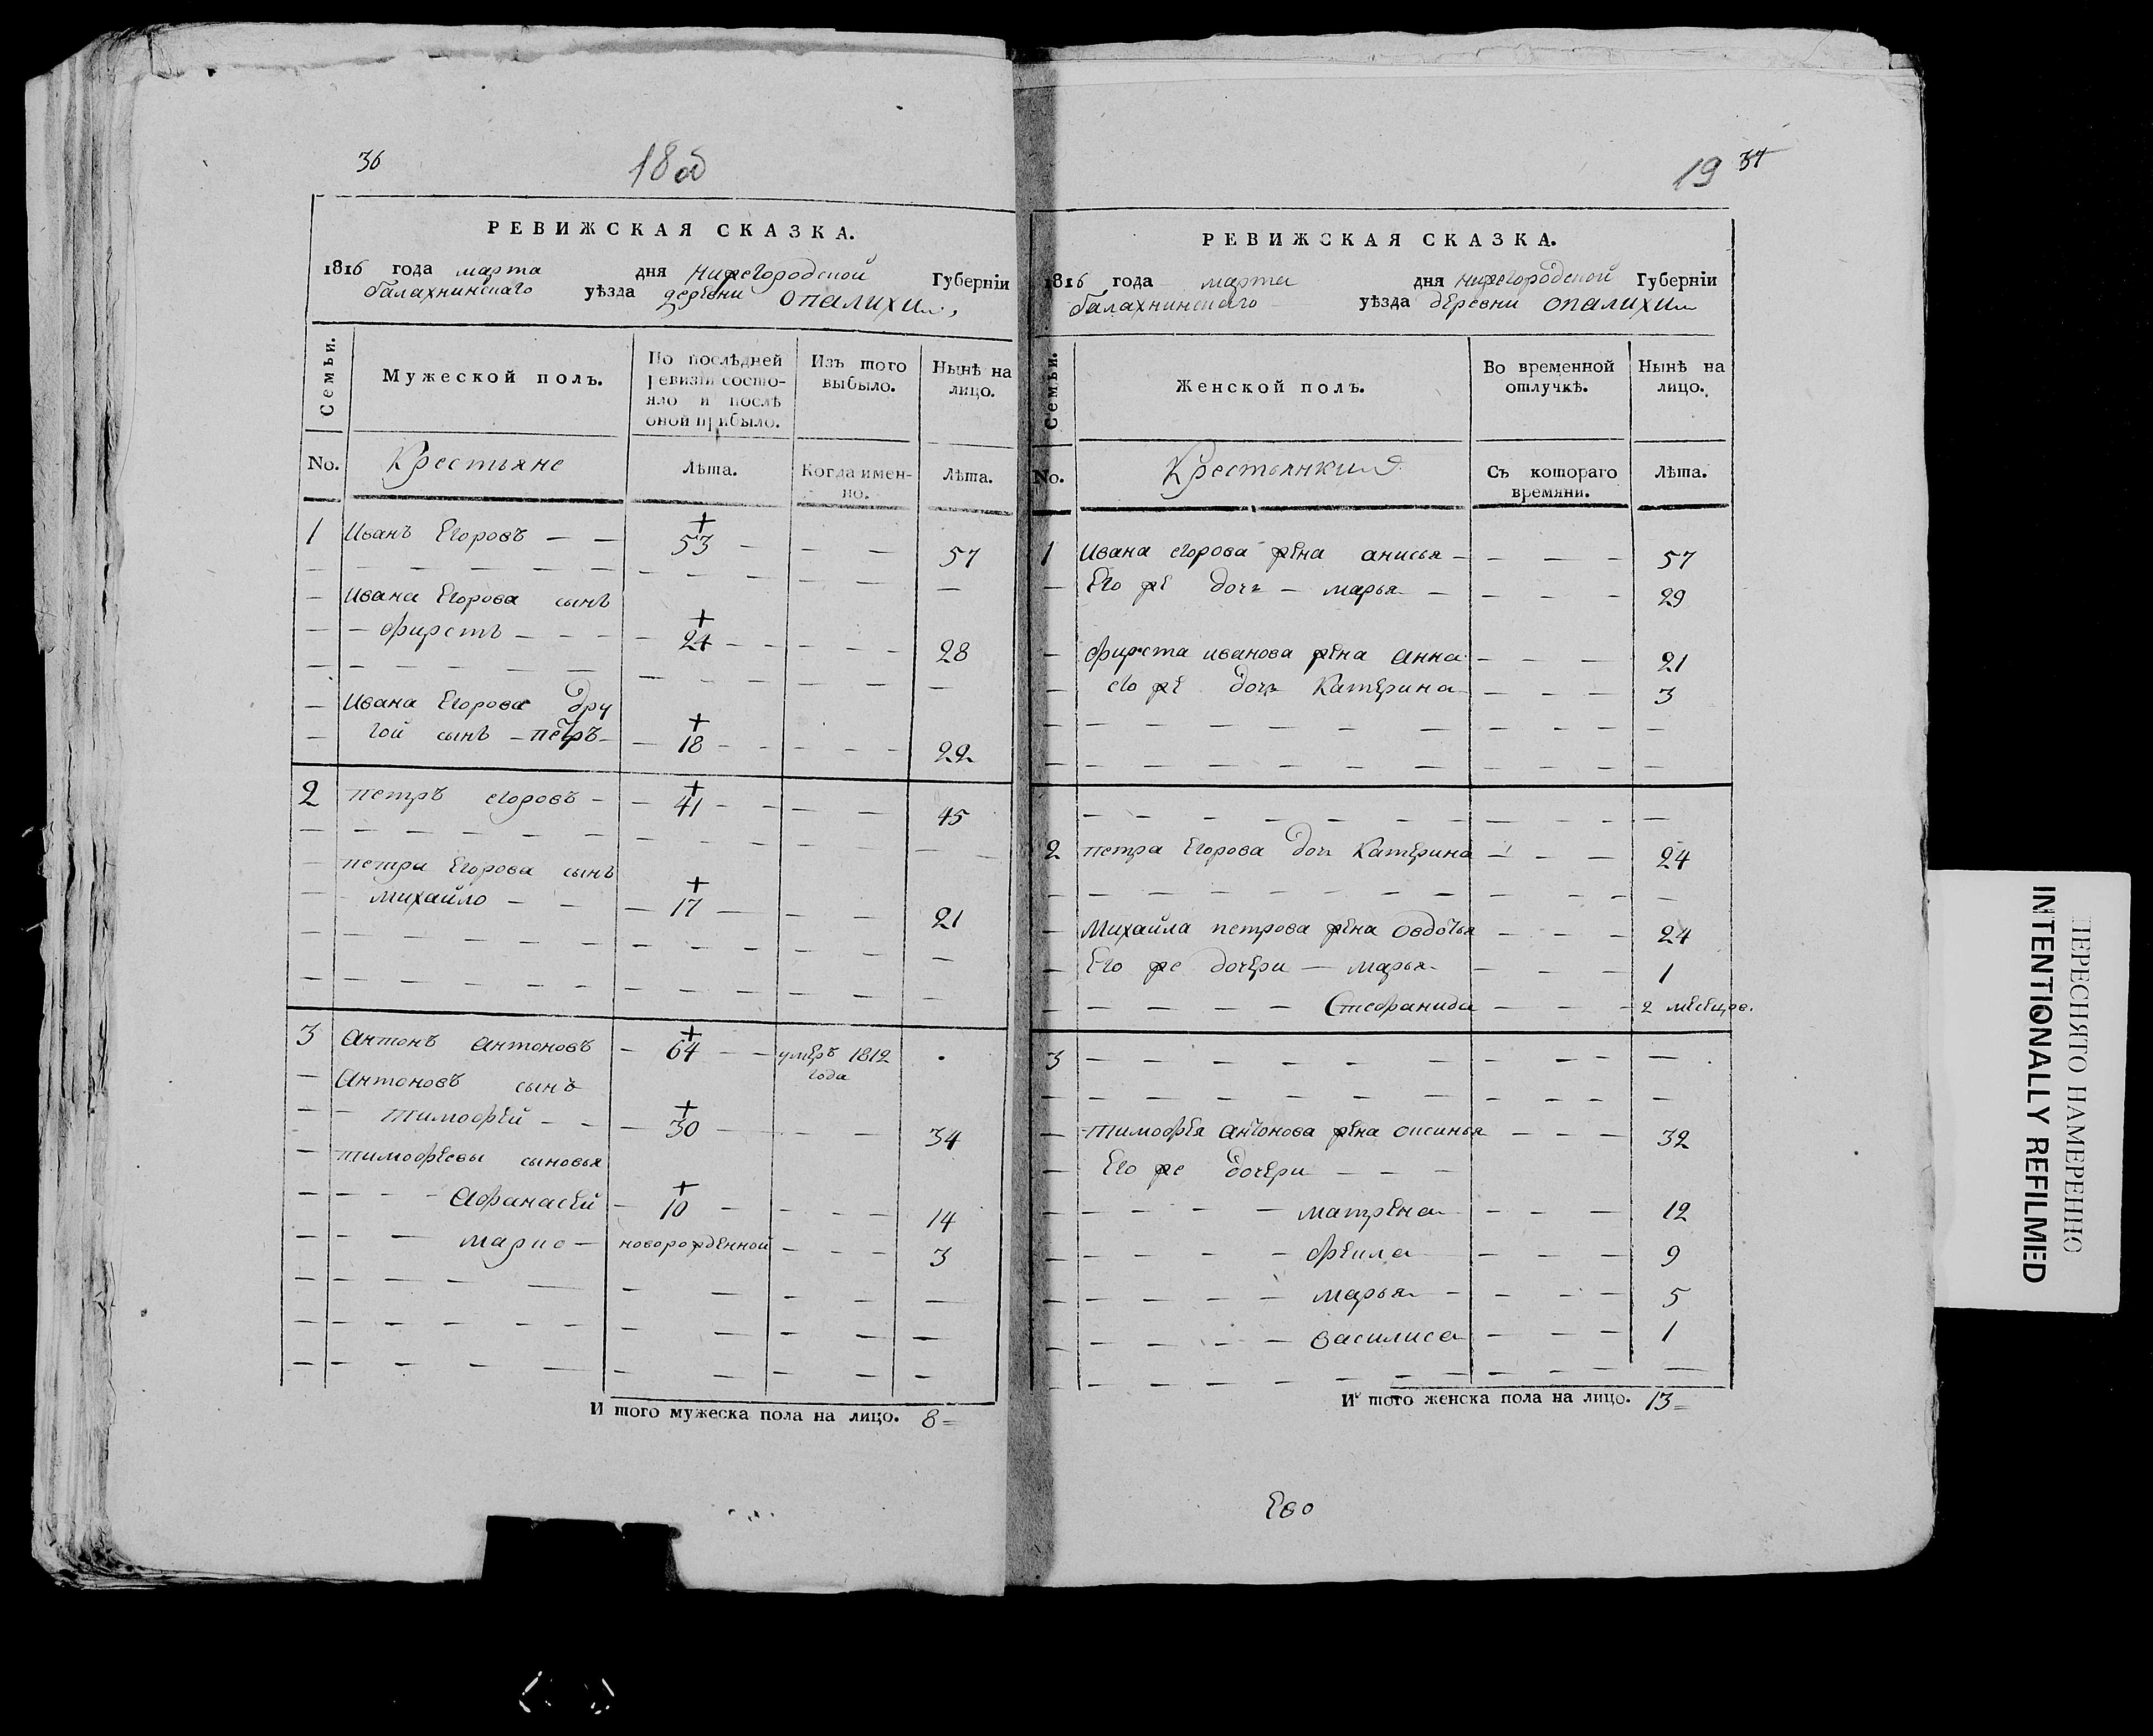 36
18 об
РЕВИЖСКАЯ СКАЗКА.
1816 года марта дня нижегородской Губерніи
балахнинскаго уѣзда деревни опалихи,
Семьи.
Мужеской полъ.
По послѣдней ревизіи состояло и послѣ оной прибыло.
Изъ того выбыло.
Нынѣ на лицо.
No. Крестьяне Лѣта. Когда именно. Лѣта.
1 Иванъ Егоровъ — — 53 — — — 57
Ивана Егорова сынъ
— фирстъ — — — 24 — — — 28
Ивана Егорова дру
гой сынъ — петръ — 18 — — — 22
2 петръ егоровъ — 41 — — — 45
петра Егорова сынъ
михайло — — 17 — — — 21
3 антонъ антоновъ — 64 — умеръ 1812 года
антоновъ сынъ
тимофей — — 30 — — — 34
тимофеевы сыновья
— — — афанасей — 10 — — — 14
— — — марко — новорожденной — — — 3
И того мужеска пола на лицо. 8=
19 37
РЕВИЖСКАЯ СКАЗКА.
1816 года марта дня нижегородской Губерніи
балахнинскаго уѣзда деревни опалихи
Семьи.
Женской полъ.
Во временной отлучкѣ.
Нынѣ на лицо.
No. Крестьянки Съ котораго времяни. Лѣта.
1 Ивана егорова жена анисья — — — 57
Его же дочь — марья — — — 29
фирста иванова жена анна — — — 21
его же дочь Катерина — — — 3
2 петра Егорова дочь Катерина — — — 24
Михайла петрова жена овдотья — — — 24
Его же дочери — марья — — — 1
Стефанида — — — 2 месецов.
3
тимофея антонова жена оксинья — — — 32
Его же дочери — — —
матрена — — — 12
фекла — — — 9
марья — — — 5
василиса — — — 1
И того женска пола на лицо. 13=
Ево
ПЕРЕСНЯТО НАМЕРЕННО
INTENTIONALLY REFILMED